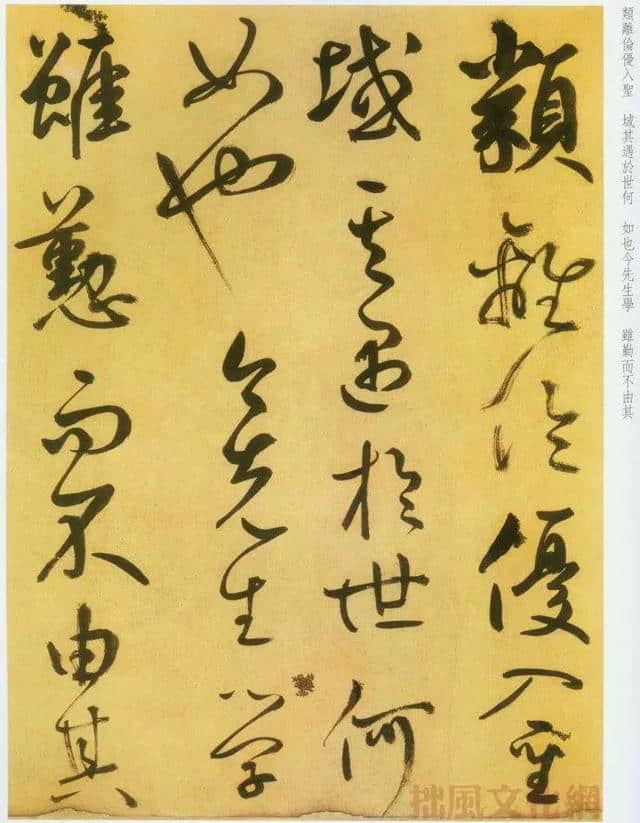 類離倫優入聖 域其遇於世何 如也今先生學 雖勤而不由其
類離倫優入聖
域其遇於世何
如也今先生学
雖懃而不由其
拙風文化網